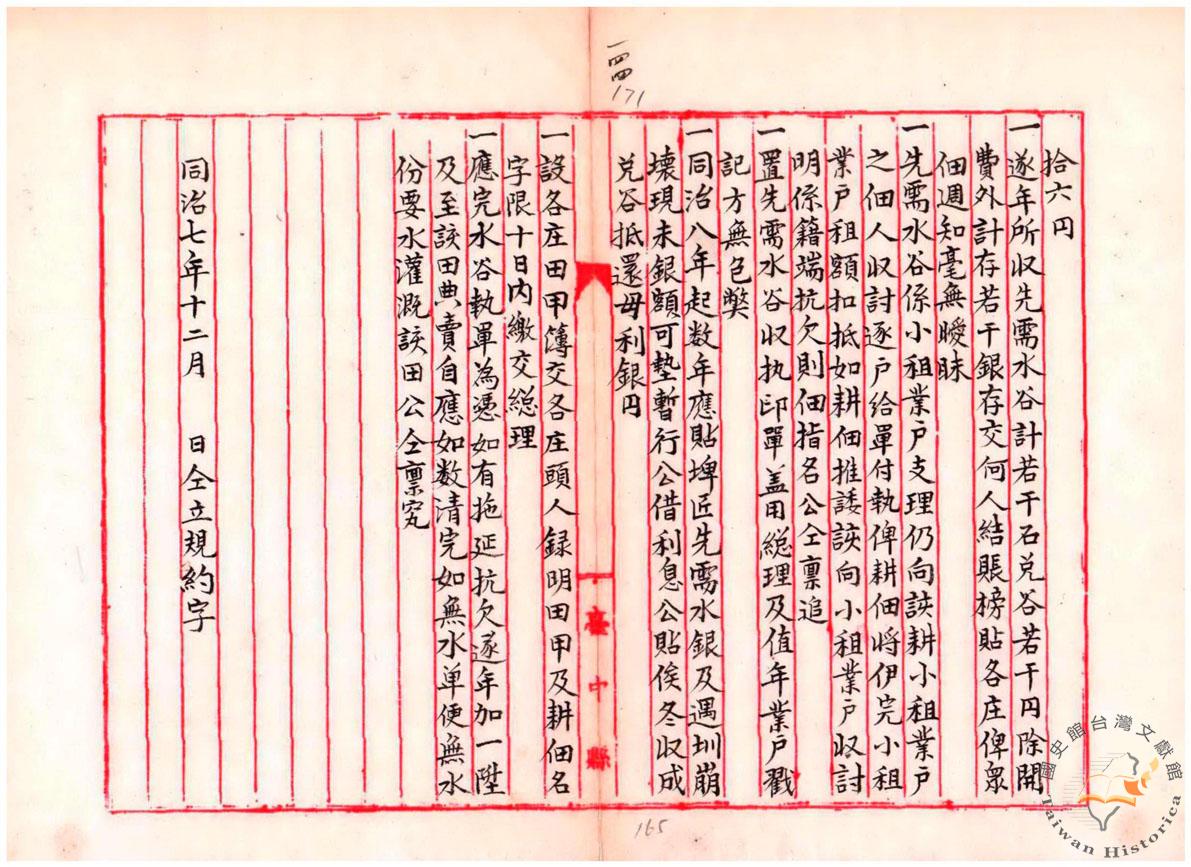 一四四
171
拾六円
一逐年所収先需水谷計若干石兑谷若干円除開
費外計存若干銀存交何人結賬榜貼各庄俾衆
佃週知毫無曖昧
一先需水谷係小租業户支理仍向該耕小租業户
之佃人収討逐戶给單付執俾耕佃將伊完小租
業户租額扣抵如耕佃推諉該向小租業户収討
明係籍端抗欠則佃指名公仝禀追
一置先需水谷収执印單盖用総理及值年業户戳
記方無色獘
一同治八年起数年應貼埤匠先需水銀及遇圳崩
壊現未銀額可墊暫行公借利息公貼俟冬収成
兑谷抵還母利銀円
臺中縣
一設各庄田甲簿交各庄頭人録明田甲及耕佃名
字限十日內繳交総理
一應完水谷執單為憑如有拖延抗欠逐年加一陞
及至該田典賣自應如数清完如無水单便無水
份要水灌溉該田公仝禀究
同治七年十二月 日仝立規約字
165
國史館台灣文獻館
Taiwan Historica